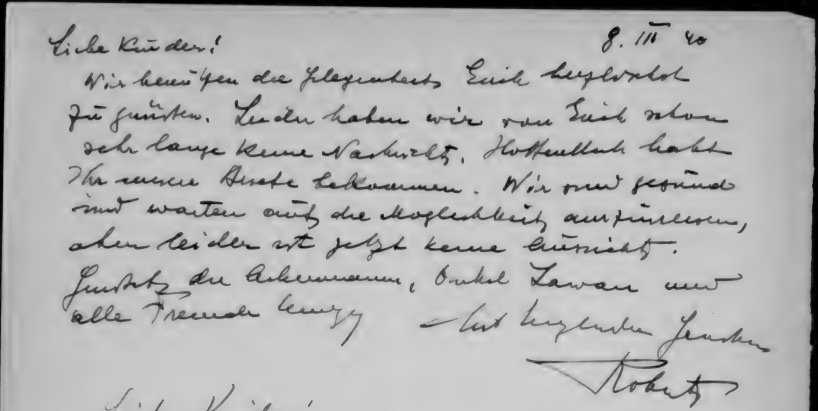 Liebe Kinder! 8. III 40
Wir benützen die Gelegenheit Euch herzlichst
zu grüssen. Leider haben wir von Euch schon
sehr lange keine Nachricht. Hoffentlich habt
Ihr unsere Briefe bekommen. Wir sind gesund
und warten auf die Möglichkeit auszureisen,
aber leider ist jetzt keine Aussicht.
die Onkel und
alle Freunde
Mit herzlichen Grüssen
Robert
Liebe Kinder!